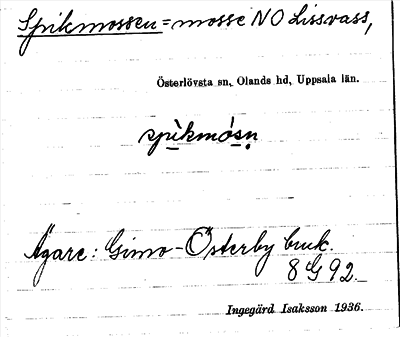 Spikmossen = mosse NO Lissvass,
Österlövsta sn, Olands hd, Uppsala län.
spìkmósn
Ägare: Gimo-Österby bruk.
8G92.
Ingegärd Isaksson 1936.